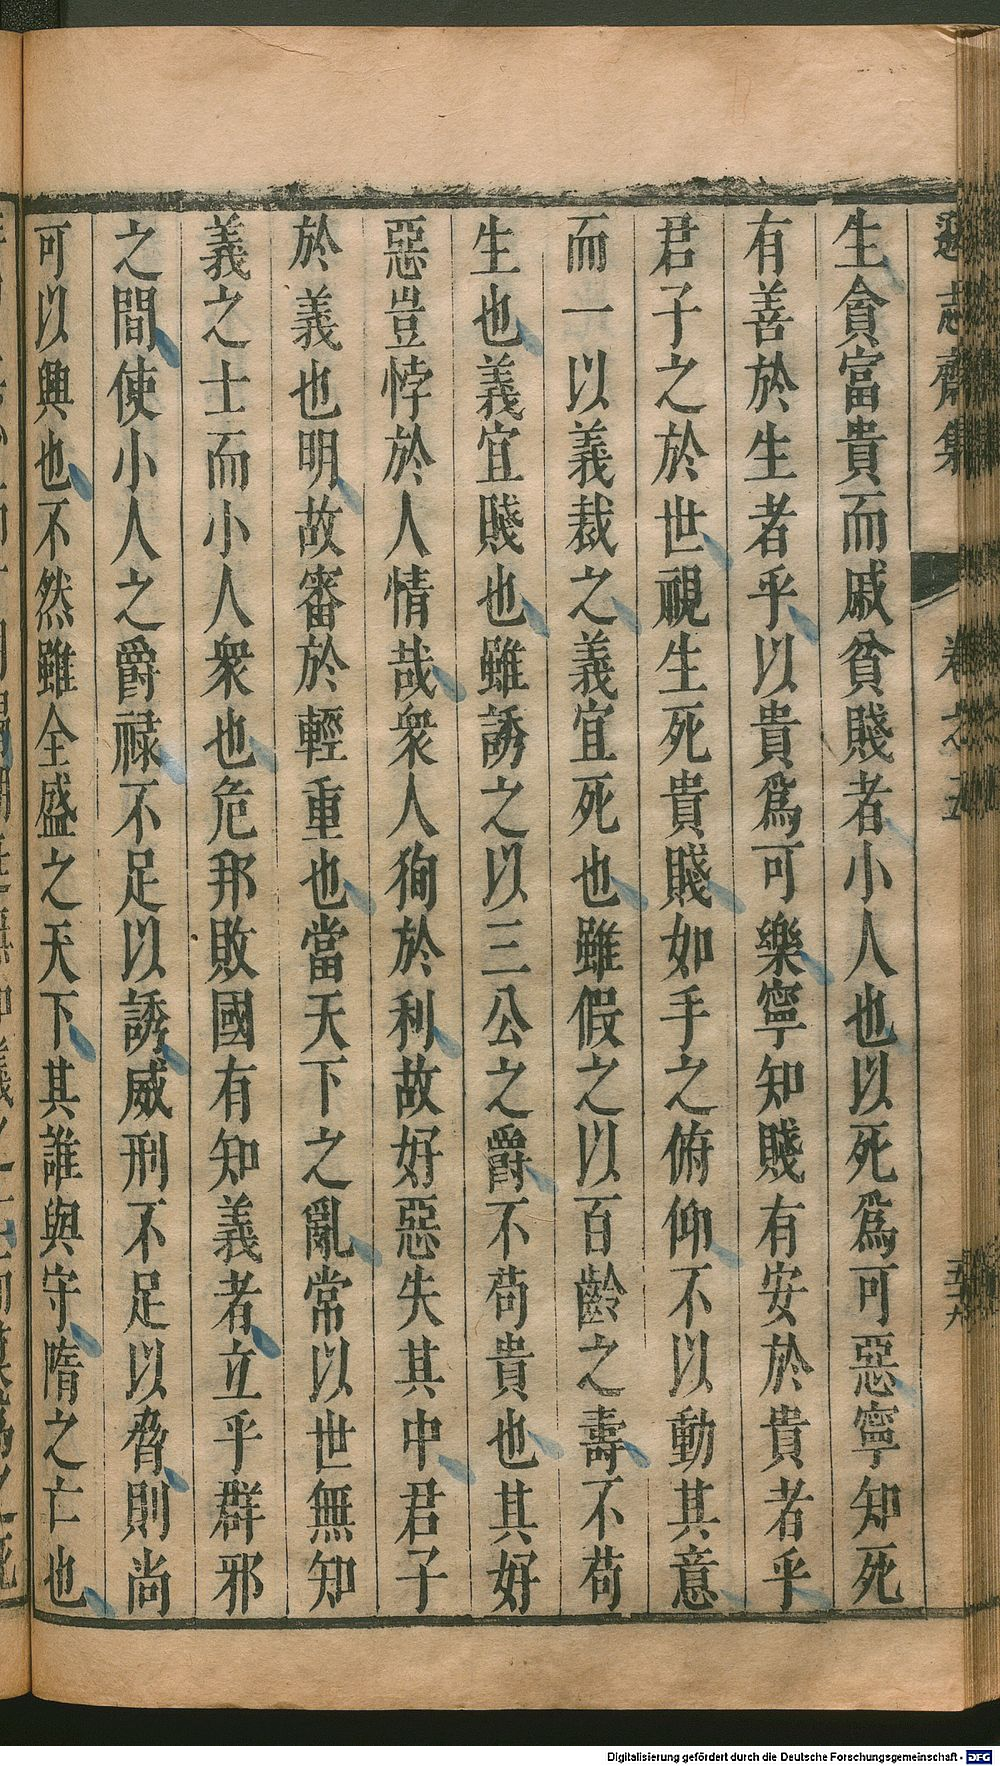 遜志齋集 卷之五 五十六
生貪富貴而戚貧賤者小人也以死爲可惡寧知死
有善於生者乎以貴爲可樂寧知賤有安於貴者乎
君子之於世視生死貴賤如手之俯仰不以動其意
而一以義裁之義宜死也雖假之以百齡之壽不苟
生也義宜賤也雖誘之以三公之爵不苟貴也其好
惡豈悖於人情哉衆人徇於利故好惡失其中君子
於義也明故審於輕重也當天下之亂常以世無知
義之士而小人衆也危邦敗國有知義者立乎群邪
之間使小人之爵祿不足以誘威刑不足以脅則尚
可以興也不然雖全盛之天下其誰與守隋之亡也
Digitalisierung gefördert durch die Deutsche Forschungsgemeinschaft - DFG